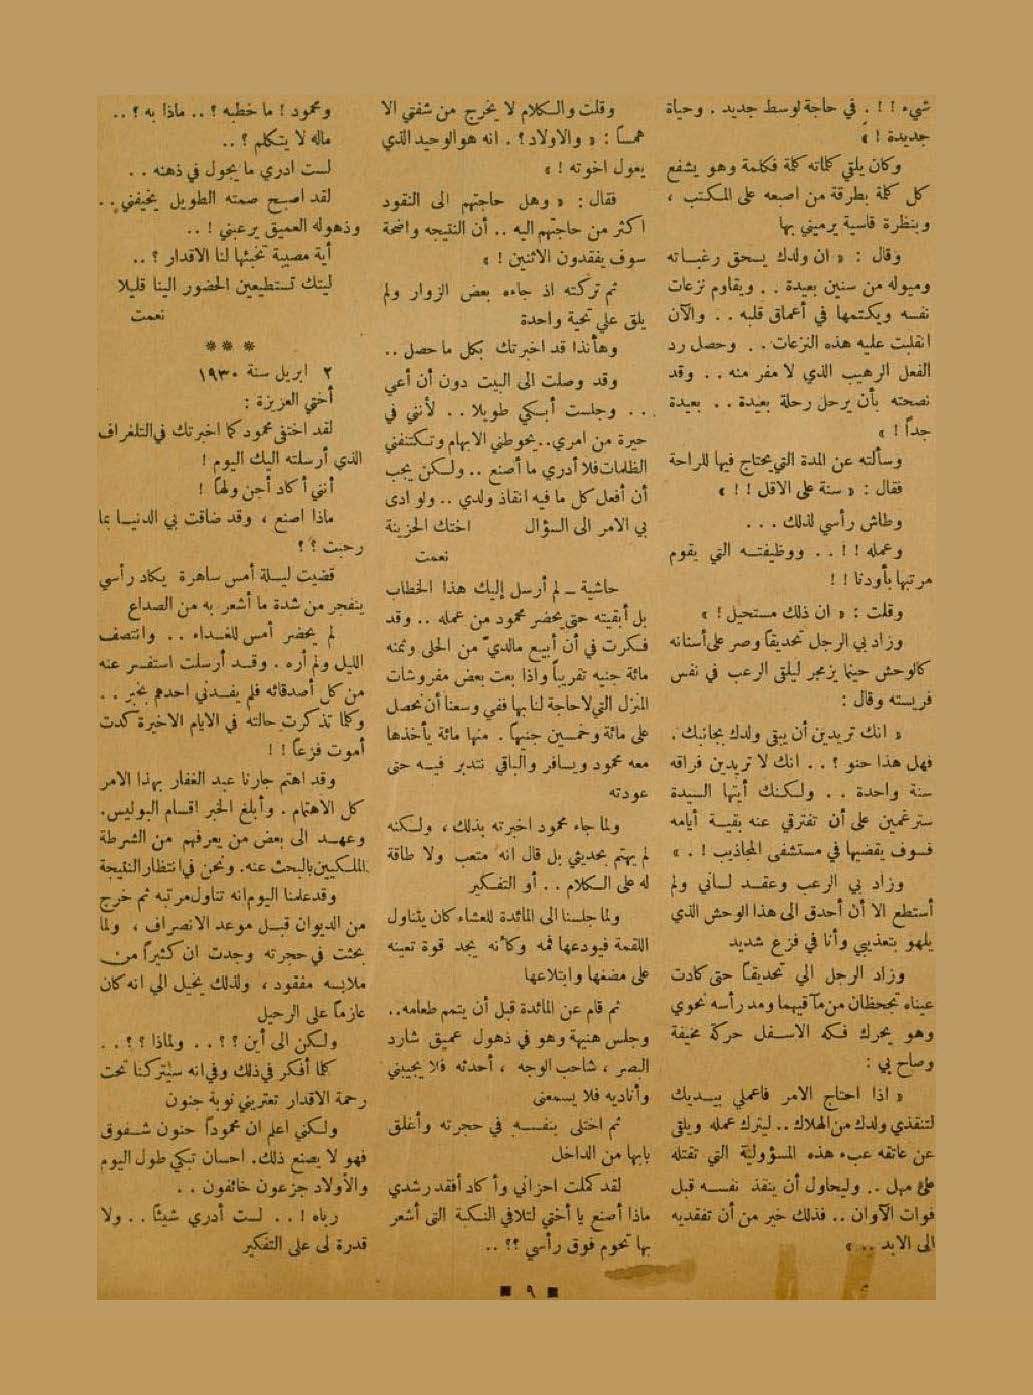 شيء ! ! . في حاجة لوسط جديد . وحياة
جديدة ! »
وكان يلقي كلماته كلمة فكلمة وهو يشفع
كل كلمة بطرقة من اصبعه على المكتب ،
وبنظرة قاسية يرميني بها
وقال : « ان ولدك يسحق رغباته
وميوله من سنين بعيدة . . ويقاوم نزعات
نفسه ويكتمها في أعماق قلبه . . والآن
انقلبت عليه هذه النزعات . . وحصل رد
الفعل الرهيب الذي لا مفر منه . . وقد
نصحته بأن يرحل رحلة بعيدة . . بعيدة
جداً ! »
وسألته عن المدة التي يحتاج فيها للراحة
فقال : « سنة على الاقل ! ! »
وطاش رأسي لذلك . . .
وعمله ! ! . . ووظيفته التي يقوم
مرتبها بأودنا ! !
وقلت : « ان ذلك مستحيل ! »
وزاد بي الرجل تحديقاً وصر على أسنانه
كالوحش حينما يزمجر ليلقى الرعب في نفس
فريسته وقال :
« انك تريدين أن يبقى ولدك بجانبك .
فهل هذا حنو ؟ . . انك لا تريدين فراقه
سنة واحدة . . ولكنك أيتها السيدة
سترغمين على أن تفترقي عنه بقية أيامه
فسوف يقضيها في مستشفى المجاذيب ! . »
وزاد بي الرعب وعقد لساني ولم
أستطع الا أن أحدق الى هذا الوحش الذي
يلهو بتعذيبي وأنا في فزع شديد
وزاد الرجل الي تحديقاً حتى كادت
عيناه تجحظان من مآقيهما ومد رأسه نحوي
وهو يحرك فكه الاسفل حركة مخيفة
وصاح بي :
« اذا احتاج الامر فاعملي بيديك
لتنقذي ولدك من الهلاك . . ليترك عمله ويلقى
عن عاتقه عبء هذه المسؤولية التي تقتله
على مهل . . وليحاول أن ينقذ نفسه قبل
فوات الآوان . . فذلك خير من أن تفقديه
الى الابد . . »
وقلت والكلام لا يخرج من شفتي الا
همساً : « والاولاد ؟ . انه هو الوحيد الذي
يعول اخوته ! »
فقال : « وهل حاجتهم الى النقود
اكثر من حاجتهم اليه . . أن النتيجه واضحة
سوف يفقدون الاثنين ! »
ثم تركته اذ جاءه بعض الزوار ولم
يلق علي تحية واحدة
وهأنذا قد اخبرتك بكل ما حصل . .
وقد وصلت الى البيت دون أن أعي
. . وجلست أبكي طويلا . . لأنني في
حيرة من امري . . يحوطني الابهام وتكتنفني
الظلمات فلا أدري ما أصنع . . ولكن يجب
أن أفعل كل ما فيه انقاذ ولدي . . ولو ادى
بي الامر الى السؤال اختك الحزينة
نعمت
حاشية – لم أرسل إليك هذا الخطاب
بل أبقيته حتى يحضر محمود من عمله . . وقد
فكرت في أن أبيع مالديّ من الحلى وثمنه
مائة جنيه تقريباً واذا بعت بعض مفروشات
المنزل التي لاحاجة لنا بها ففي وسعنا أن نحصل
على مائة وخمسين جنيهاً . منها مائة يأخذها
معه محمود ويسافر والباقي نتدبر فيه حتى
عودته
ولما جاء محمود اخبرته بذلك ، ولكنه
لم يهتم بحديثي بل قال انه متعب ولا طاقة
له على الكلام . . أو التفكير
ولما جلسنا الى المائدة للعشاء كان يتناول
اللقمة فيودعها فمه وكأنه يجد قوة تعينه
على مضغها وابتلاعها
ثم قام عن المائدة قبل أن يتمم طعامه . .
وجلس هنيهة وهو في ذهول عميق شارد
البصر ، شاحب الوجه ، أحدثه فلا يجيبني
وأناديه فلا يسمعنى
ثم اختلى بنفسه في حجرته وأغلق
بابها من الداخل
لقد كملت احزاني وأكاد أفقد رشدي
ماذا أصنع يا أختي لتلافي النكبة التى أشعر
بها تحوم فوق رأسي ؟؟ . .
ومحمود ! ما خطبه ؟ . . ماذا به ؟ . .
ماله لا يتكلم ؟ . .
لست ادري ما يجول في ذهنه . .
لقد اصبح صمته الطويل يخيفني . .
وذهوله العميق يرعبني ! . .
أية مصيبة تخبئها لنا الاقدار ؟ . .
ليتك تستطيعين الحضور الينا قليلا
نعمت
* * *
٢ ابريل سنة ١٩٣٠
أختي العزيزة :
لقد اختفى محمود كما اخبرتك في التلغراف
الذي أرسلته اليك اليوم !
أنني أكاد أجن ولهاً !
ماذا اصنع ، وقد ضاقت بي الدنيا بما
رحبت ؟ ؟
قضيت ليلة أمس ساهرة يكاد رأسي
ينفجر من شدة ما أشعر به من الصداع
لم يحضر أمس للغداء . . وانتصف
الليل ولم أره . وقد أرسلت استفسر عنه
من كل أصدقائه فلم يفدني احدهم بخبر . .
وكلما تذكرت حالته في الايام الاخيرة كدت
أموت فزعاً ! !
وقد اهتم جارنا عبد الغفار بهذا الامر
كل الاهتمام . وأبلغ الخبر اقسام البوليس.
وعهد الى بعض من يعرفهم من الشرطة
الملكيين بالبحث عنه. ونحن في انتظار النتيجة
وقد علمنا اليوم انه تناول مرتبه ثم خرج
من الديوان قبل موعد الانصراف ، ولما
بحثت في حجرته وجدت ان كثيراً من
ملابسه مفقود ، ولذلك يخيل الي انه كان
عازماً على الرحيل
ولكن الى أين ؟ ؟ . . ولماذا ؟ ؟ . .
كلما أفكر في ذلك وفي انه سيتركنا تحت
رحمة الاقدار تعتريني نوبة جنون
ولكني اعلم ان محموداً حنون شفوق
فهو لا يصنع ذلك. احسان تبكي طول اليوم
والأولاد جزعون خائفون . .
رباه ! . . لست أدري شيئاً . . ولا
قدرة لى على التفكير
■ ٩ ■